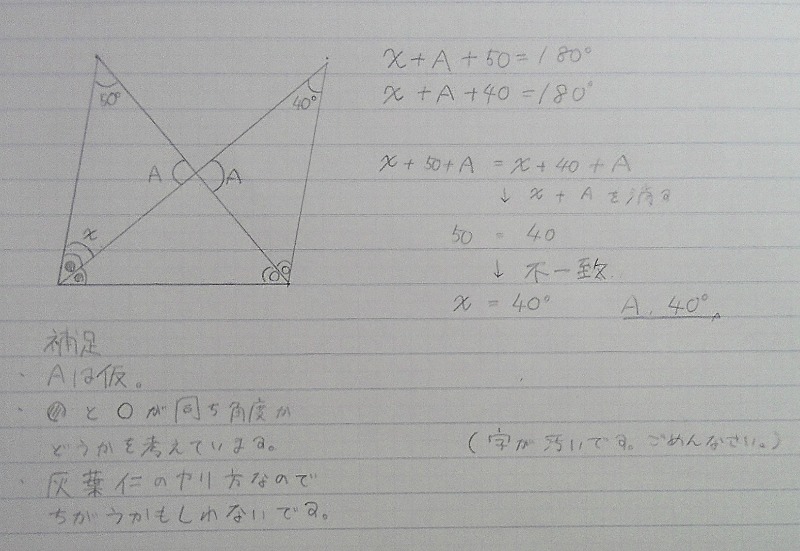 50°
40°
A
A
x
x+A+50=180°
x+A+40=180°
x+50+A=x+40+A
↓ x+Aを消す
50 = 40
↓ 不一致
x = 40°
A. 40°
補足
・Aは仮。
・◍と○が同ぢ角度か
どうかを考えています。
・灰葉仁のヤリ方なので
ちがうかもしれないです。
(字が汚いです。ごめんなさい。)